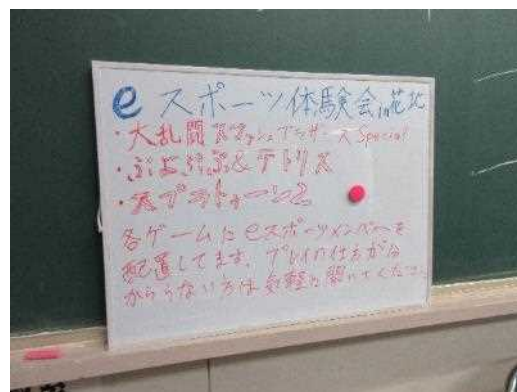 eスポーツ体験会in花北
・大乱闘スマッシュブラザーズSpecial
・ぷよぷよ&テトリス
・スプラトゥーン2
各ゲームにeスポーツメンバーを
配置してます。プレイの仕方が分
からない方は気軽に聞いてください